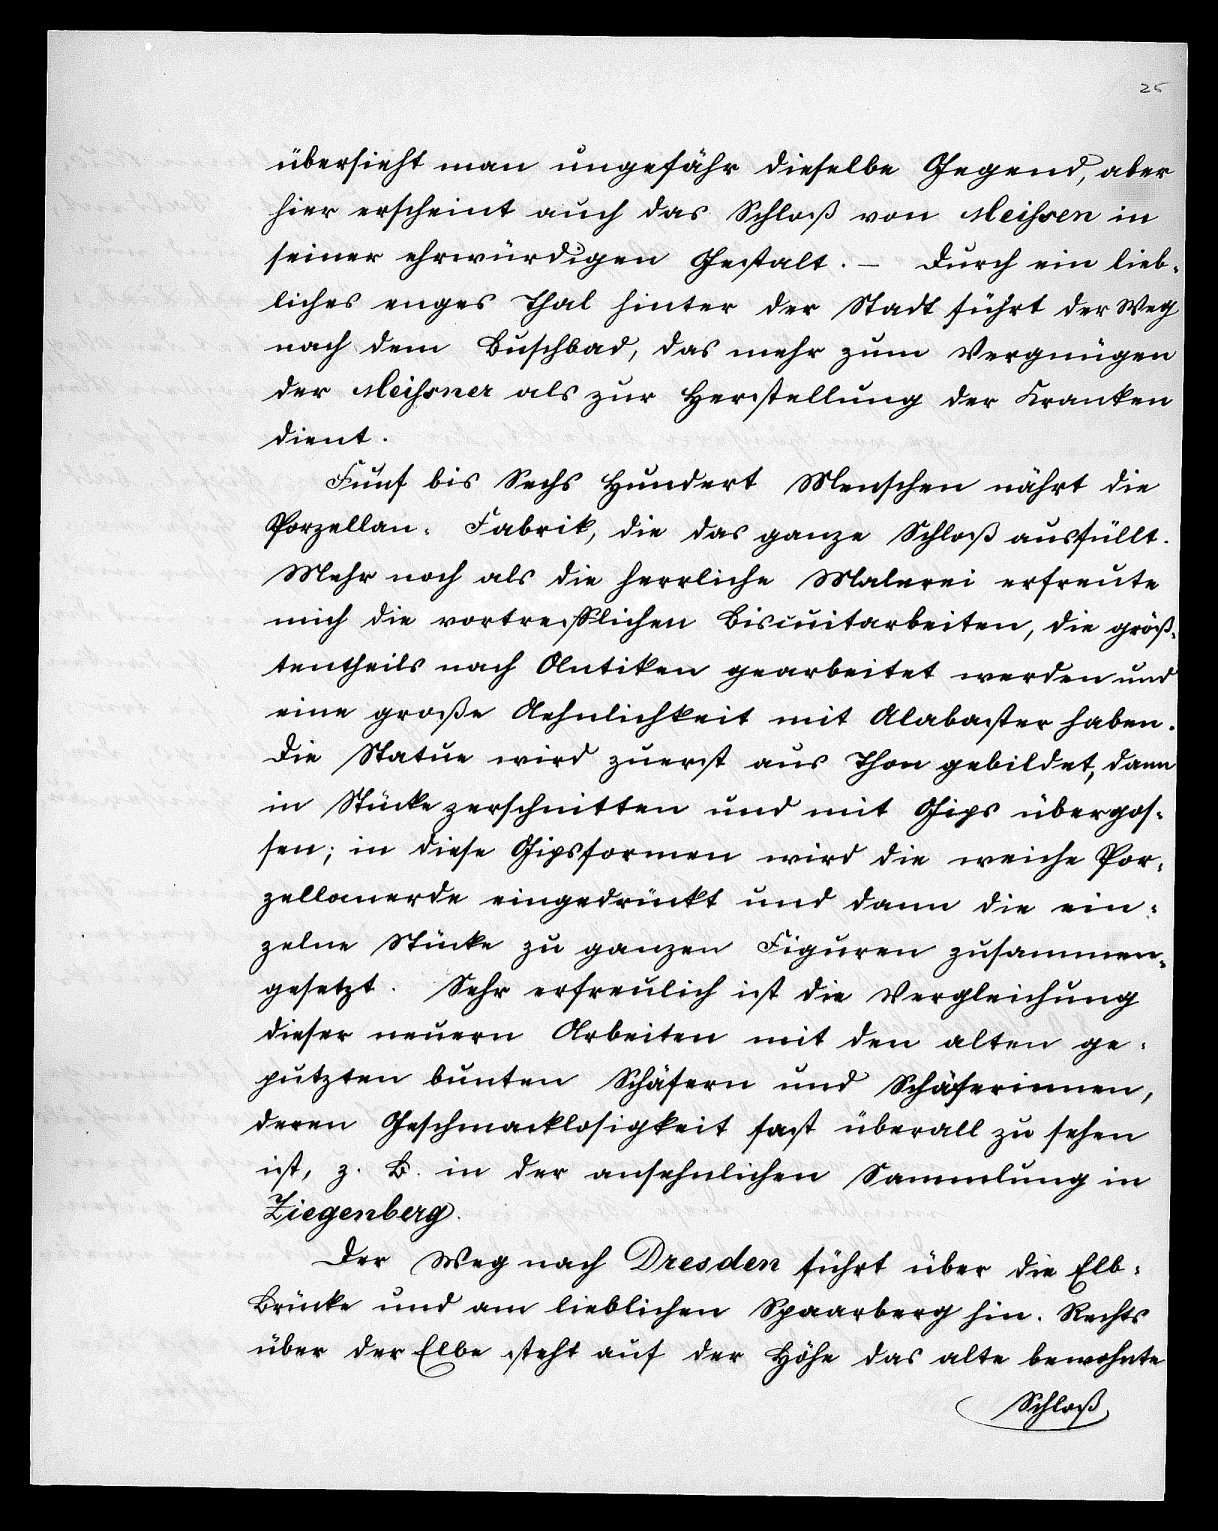 25
übersieht man ungefähr dieselbe Gegend, aber
hier erscheint auch das Schloß von Meißen in
seiner ehrwürdigen Gestalt. – Durch ein lieb-
liches enges Thal hinter der Stadt führt der Weg
nach dem Buschbad, das mehr zum Vergnügen
der Meißner als zur Herstellung der Kranken
dient.
Fünf bis Sechs Hundert Menschen nährt die
Porzellan-Fabrik, die das ganze Schloß ausfüllt.
Mehr noch als die herrliche Malerei erfreute
mich die vortrefflichen Biscuitarbeiten, die größ-
tentheils nach Antiken gearbeitet werden und
eine große Aehnlichkeit mit Alabaster haben.
Die Statue wird zuerst aus Thon gebildet, dann
in Stücke zerschnitten und mit Gips übergos-
sen; in diese Gipsformen wird die weiche Por-
zellanerde eingedrückt und dann die ein-
zelne Stücke zu ganzen Figuren zusammen-
gesetzt. Sehr erfreulich ist die Vergleichung
dieser neuern Arbeiten mit den alten ge-
putzten bunten Schäfern und Schäferinnen,
deren Geschmacklosigkeit fast überall zu sehen
ist, z. B. in der ansehnlichen Sammlung in
Ziegenberg.
Der Weg nach Dresden führt über die Elb-
Brücke und am lieblichen Spaarberg hin. Rechts
über der Elbe steht auf der Höhe das alte bewohnte
Schloß